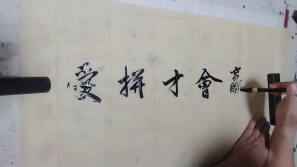 愛拼才會